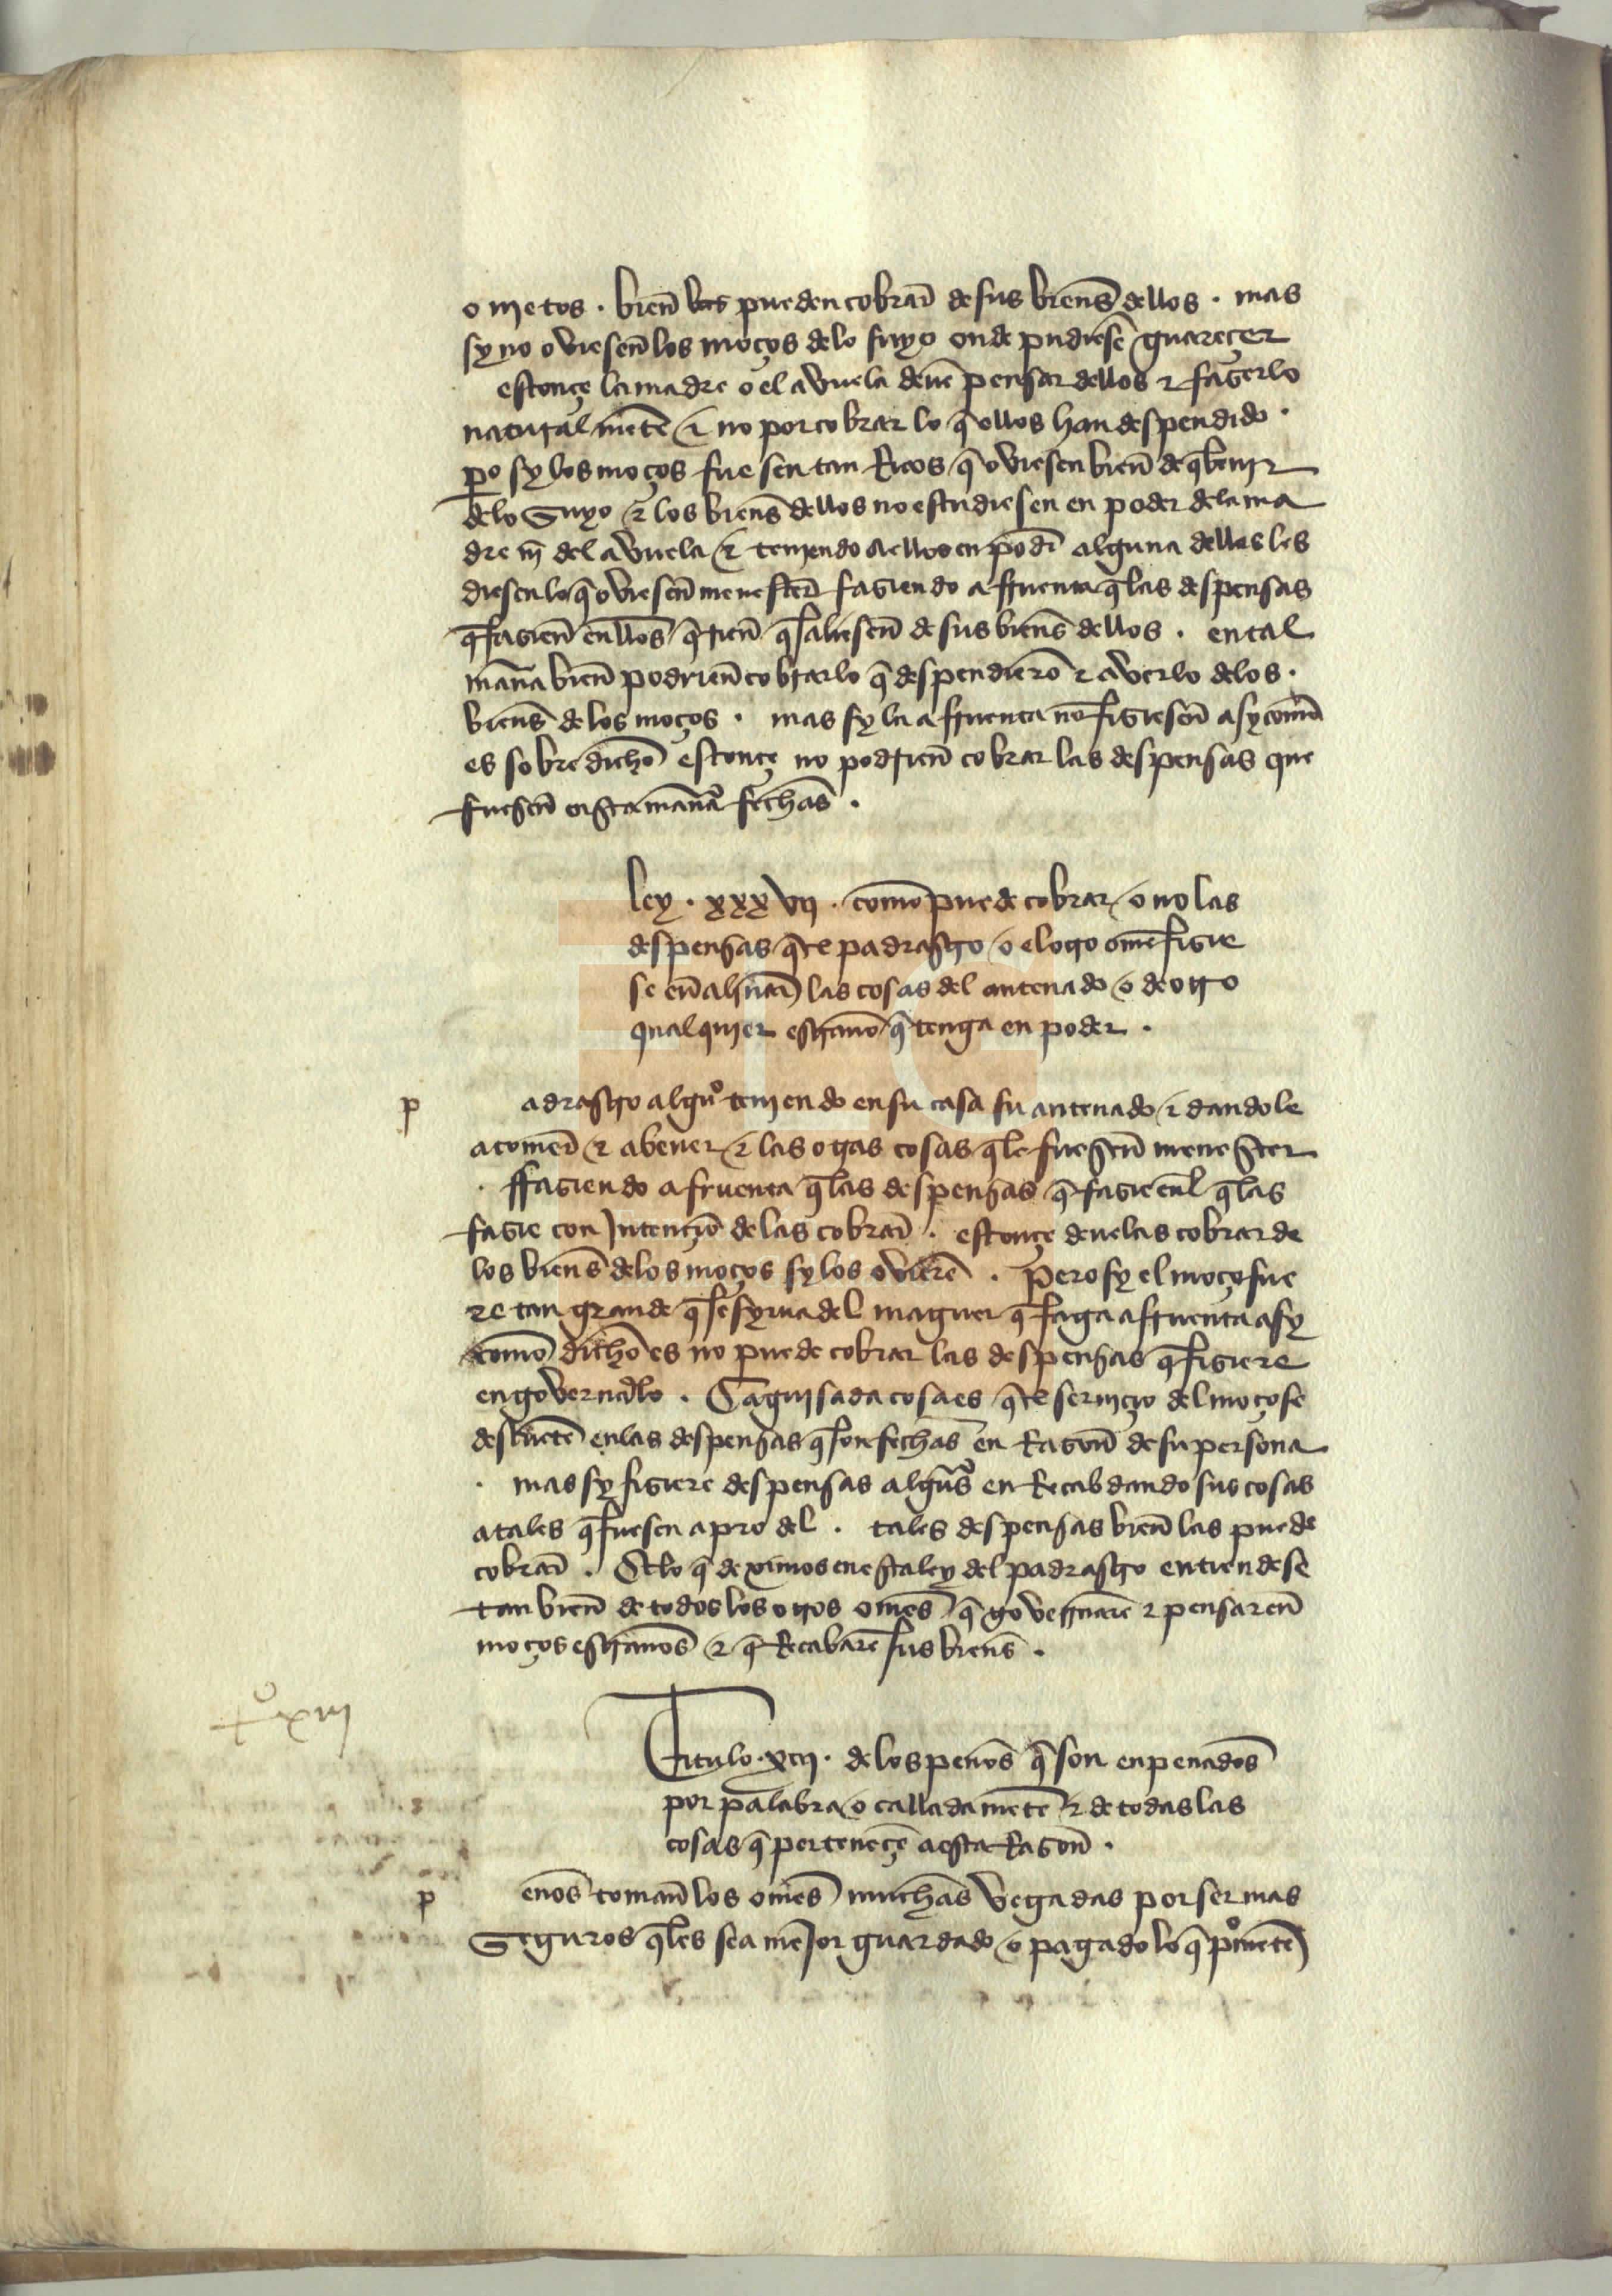 o nietos . bien̄ pueden cobrar̄ de sus bien̄s dellos . mas
sy no oviesen̄ los moços de lo suyo onde pudiesē guareçer
estonçe la madre o el avuela deuē pensar dellos ⁊ fazerlo
natural mētē ⁊ no por cobrar lo q̄ ellos han despendido .
ꝑo sy los moços fuesen tan Ricos q̄ oviesen bien̄ de q̄ beuir
de lo Suyo ⁊ los bien̄s dellos no estudiesen en poder de la ma
dre nī del avuela ⁊ teniendo a ellos en podr̄ alguna dellas les
diesen lo q̄ oviesen̄ menester̄ faziendo afruenta q̄ las despensas
q̄ fazien̄ en ellos q̄rien̄ q̄ saliesen̄ de sus bien̄s dellos . en tal
man̄a bien̄ podrien̄ cobrar lo q̄ despendierō ⁊ averlo de los .
bien̄s de los moços . mas sy la afruenta nō fiziesen̄ asy comō
es sobre dichō estonçe no podrien̄ cobrar las despensas que
fuesen̄ en esta man̄a fechas .
ley . xxxvij . comō puede cobrar o no las
despensas q̄ el padrastro o el otro omē fizie
se en̄ aliñar̄ las cosas del antenado o de otro
qualquier estrano q̄ tenga en poder .
p adrastro algun̊ teniendo en su casa su antenado ⁊ dandole
a comer̄ ⁊ a bever ⁊ las otras cosas q̄ le fuesen̄ menester
. ffaziendo afruenta q̄ las despensas q̄ fazie en̄l q̄ las
fazie con Jntençiō de las cobrar̄ . estonçe deue las cobrar de
los bien̄s de los moços sy los ovierē . Pero sy el moço fue
re tan grande q̄ se syrua del maguer q̄ faga afruenta asy
comō dichō es no puede cobrar las despensas q̄ fiziere
en governarlo . Ca guisada cosa es q̄ el seruiçio del moço se
descuētē en las despensas q̄ son fechas en Razon̄ de su persona
. mas sy fiziere despensas algun̄s en Recabdando sus cosas
atales q̄ fuesen a pro del . tales despensas bien̄ las puede
cobrar̄ . Et lo q̄ deximos en esta ley del padrastro entiendese
tan bien̄ de todos los otros omēs q̄ governarē ⁊ pensaren̄
moços estranos ⁊ q̄ Recabarē sus bien̄s .
tº xiij
Titulo . xiij . de los penōs q̄ son enpenados
por palabra o callada mētē ⁊ de todas las
cosas q̄ perteneçē a esta Razon̄ .
p enōs toman̄ los omēs muchas vegadas por ser mas
Seguros q̄ les sea meJor guardado o pagado lo q̄ pºmetē